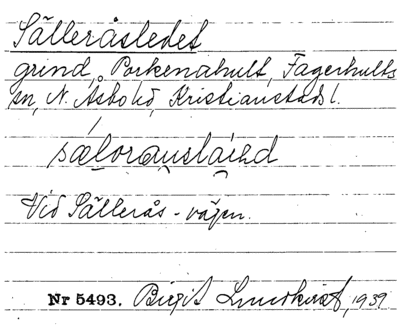 Sälleråsledet
grind, Porkenahult, Fagerhults
sn, N. Åsbo hd, Kristianstads l.
Vid Sällerås-vägen.
Nr 5493. Birgit Lundkvist, 1939